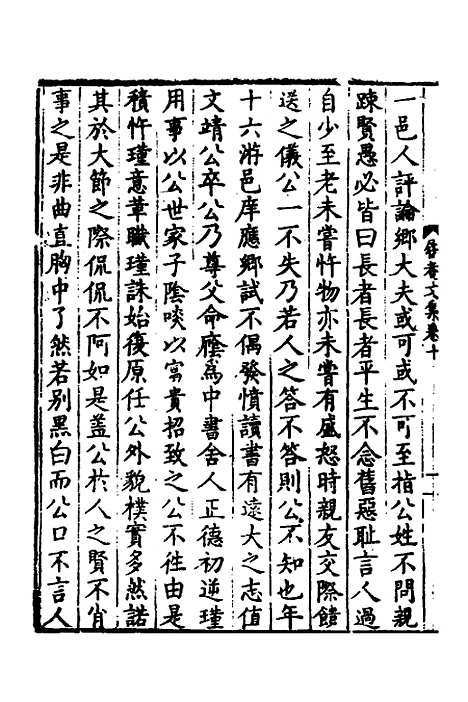 一邑人評論鄉大夫或可或不可至指公姓不問親
踈賢愚必皆曰長者長者平生不念舊惡耻言人過
自少至老未嘗忤物亦未嘗有盛怒時親友交際饋
送之儀公一不失乃若人之答不答則公不知也年
十六游邑庠應鄉試不偶發憤讀書有遠大之志值
文靖公卒公乃尊父命廕爲中書舍人正德初逆瑾
用事以公世家子陰啖以富貴招致之公不徃由是
積忤瑾意革職瑾誅始復原任公外貌樸實多然諾
其於大節之際侃侃不阿如是盖公於人之賢不肖
事之是非曲直胸中了然若別黑白而公口不言人
文集卷十